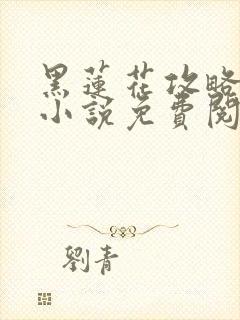 黑蓮花攻略
小說免費閱
劉青